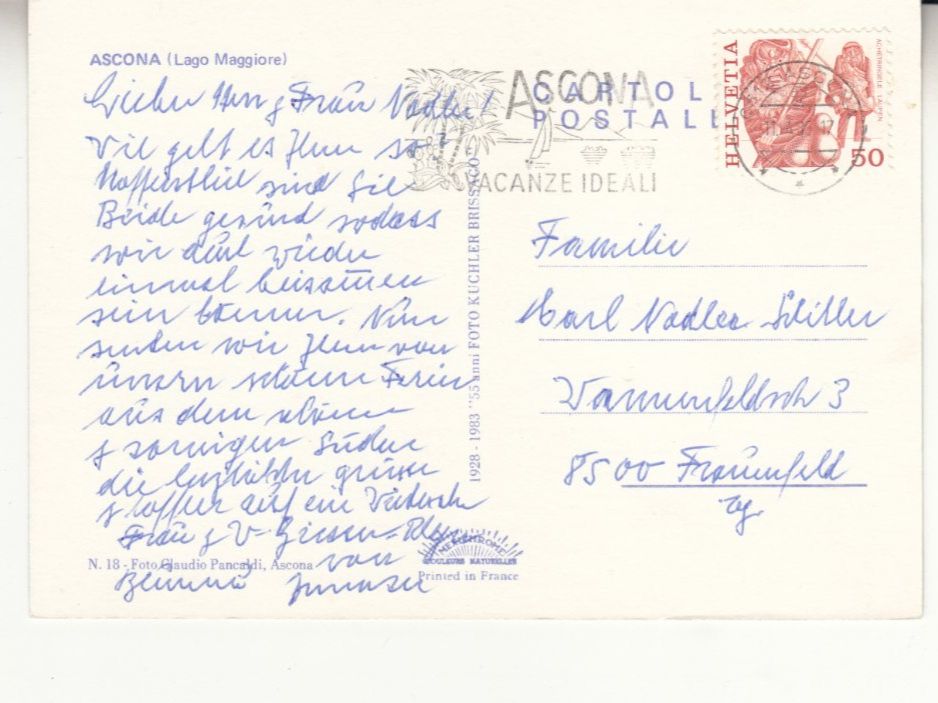 ASCONA (Lago Maggiore)
Lieber Herr & Frau Nadler!
Wie geht es Ihnen so
Hoffentlich sind Sie
Beide gesund sodass
wir auch wieder
einmal beisammen
sein können. Nun
senden wir Ihnen von
unsern schönen Ferien
aus dem schönen
& sonnigen Süden
die herzlichsten grüsse
& hoffen auf ein Wiedersehn
Frau &
von
N. 18 - Foto Claudio Pancaldi, Ascona
1928 - 1983 "55 anni FOTO KUCHLER BRISSAGO
ASCONA
VACANZE IDEALI
CARTOL
POSTALL
HELVETIA
50
Familie
Karl Nadler
3
8500 Frauenfeld
Tg.
MEXICHROME
COULEURS NATURELLES
Printed in France